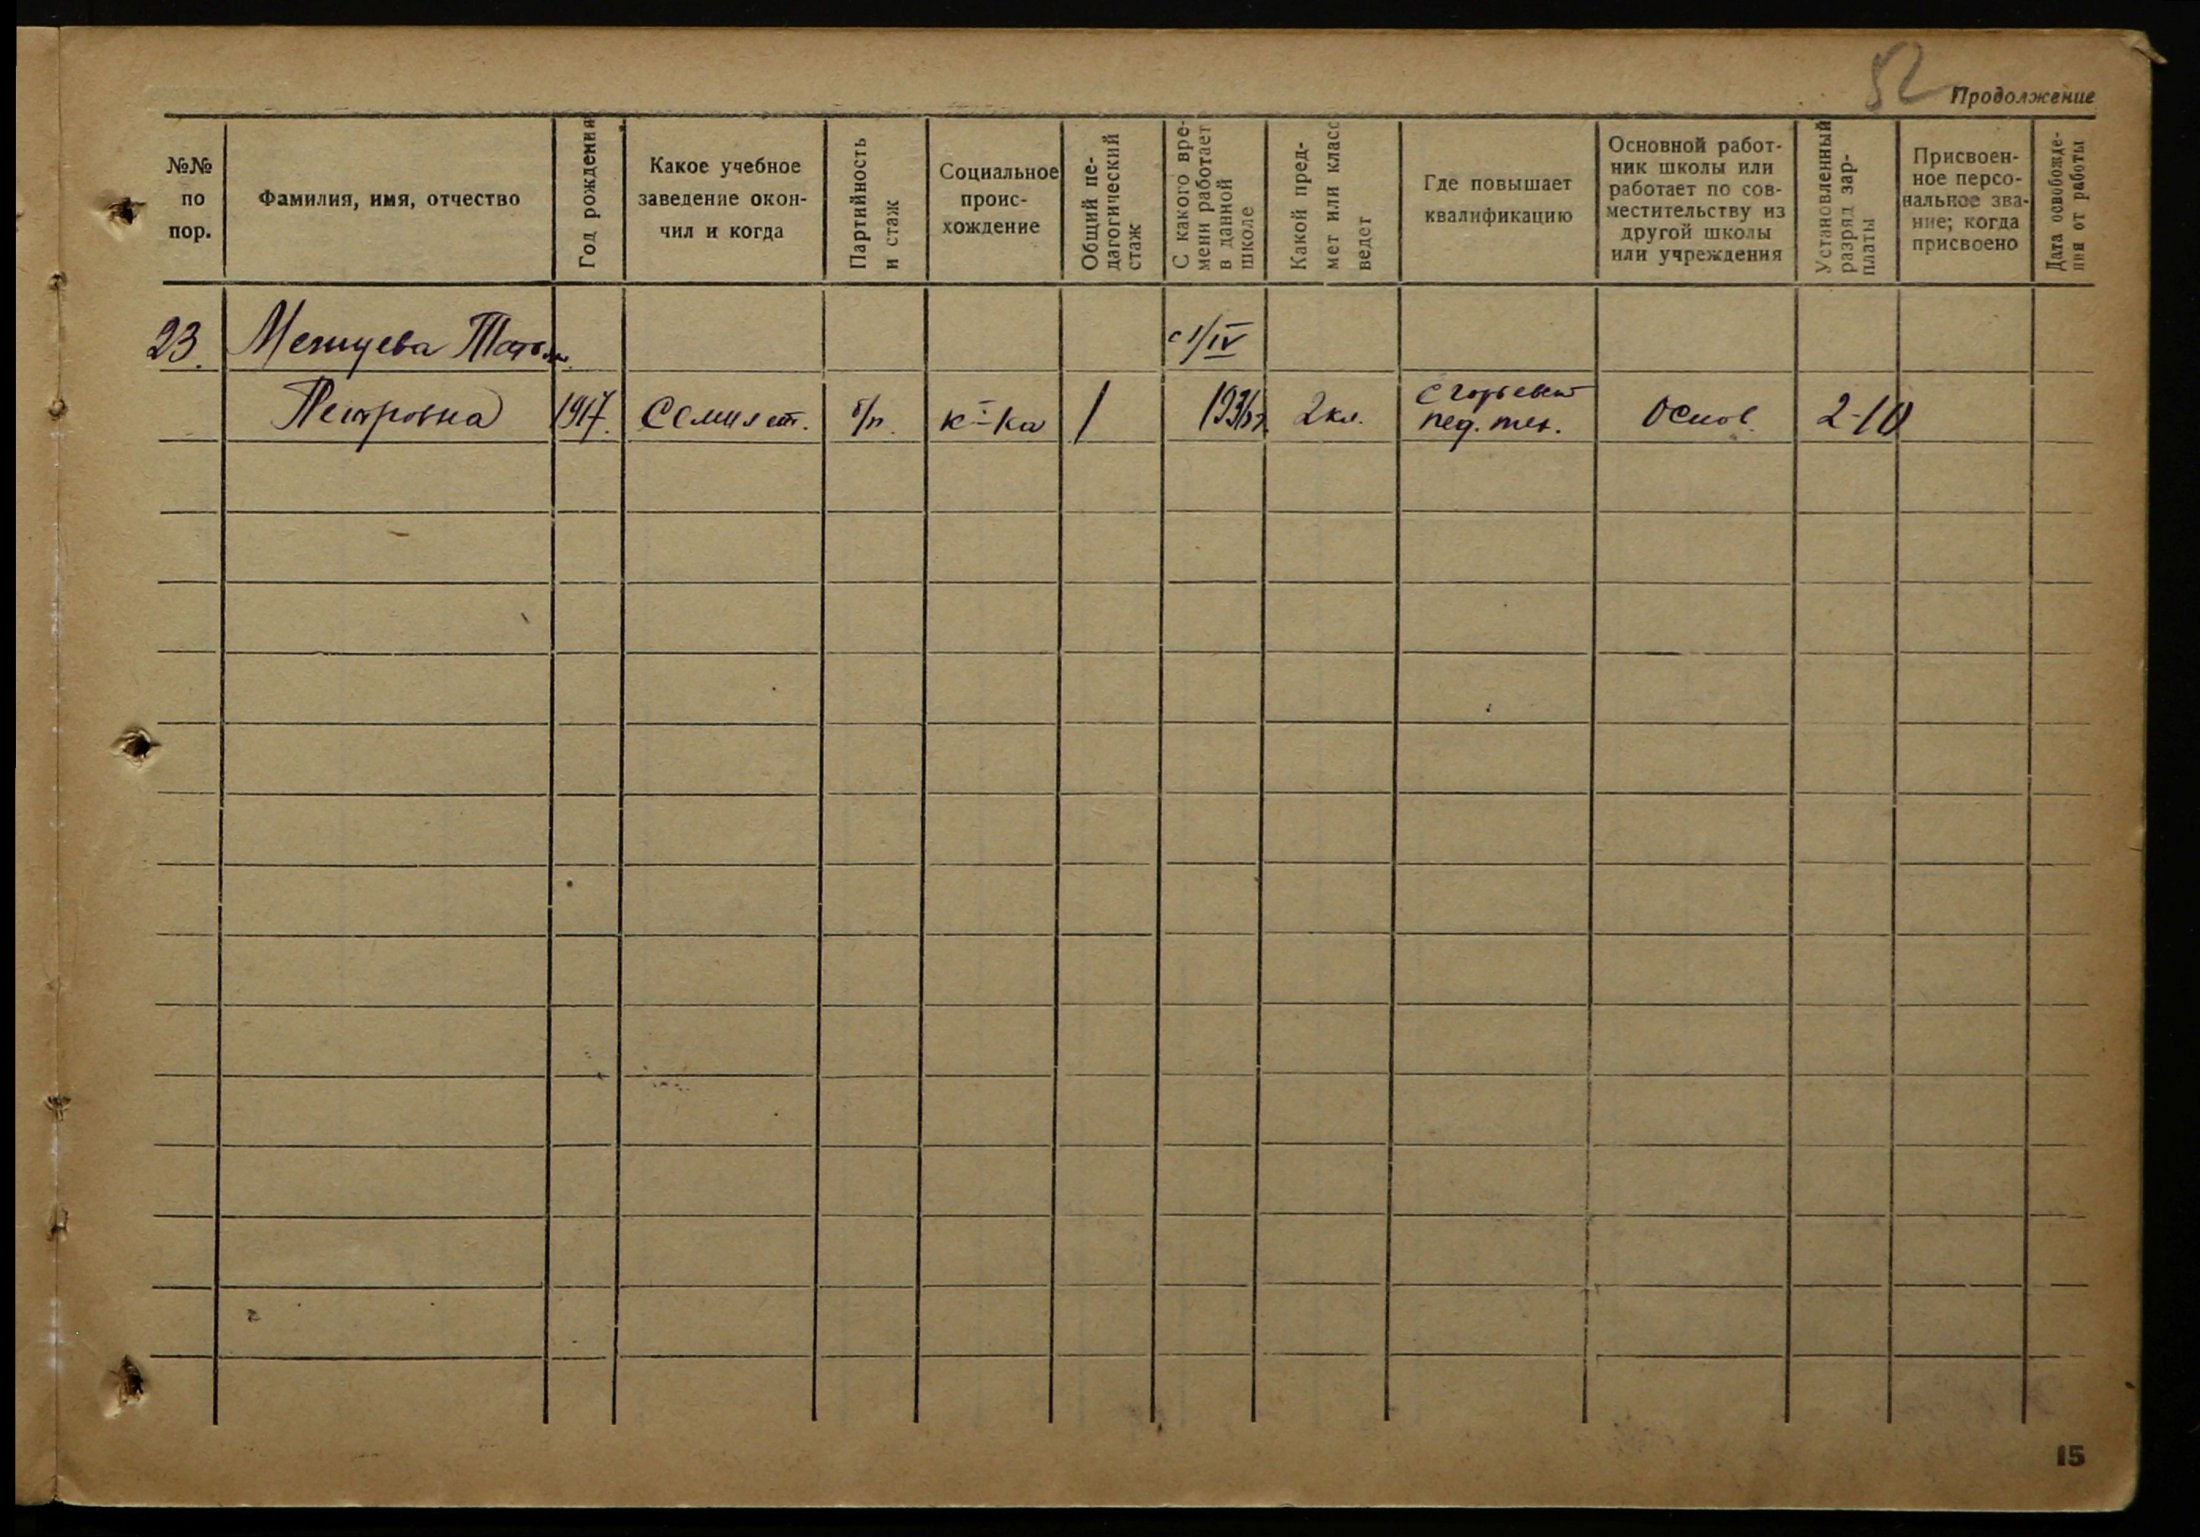 52
Продолжение
№№
по
пор.
Фамилия, имя, отчество
Год рождения
Какое учебное
заведение окон-
чил и когда
Партийность
и стаж
Социальное
проис-
хождение
Общий пе-
дагогический
стаж
С какого вре-
мени работает
в данной
школе
Какой пред-
мет или класс
ведет
Где повышает
квалификацию
Основной работ-
ник школы или
работает по сов-
местительству из
другой школы
или учреждения
Установленный
разряд зар-
платы
Присвоен-
ное персо-
нальное зва-
ние; когда
присвоено
Дата освобожде-
ния от работы
23.
с 1/IV
Петровна
1917.
Семилет.
б/п.
к-ка
1
2 кл.
Егорьевск
пед. тех.
Основ.
2-10
15